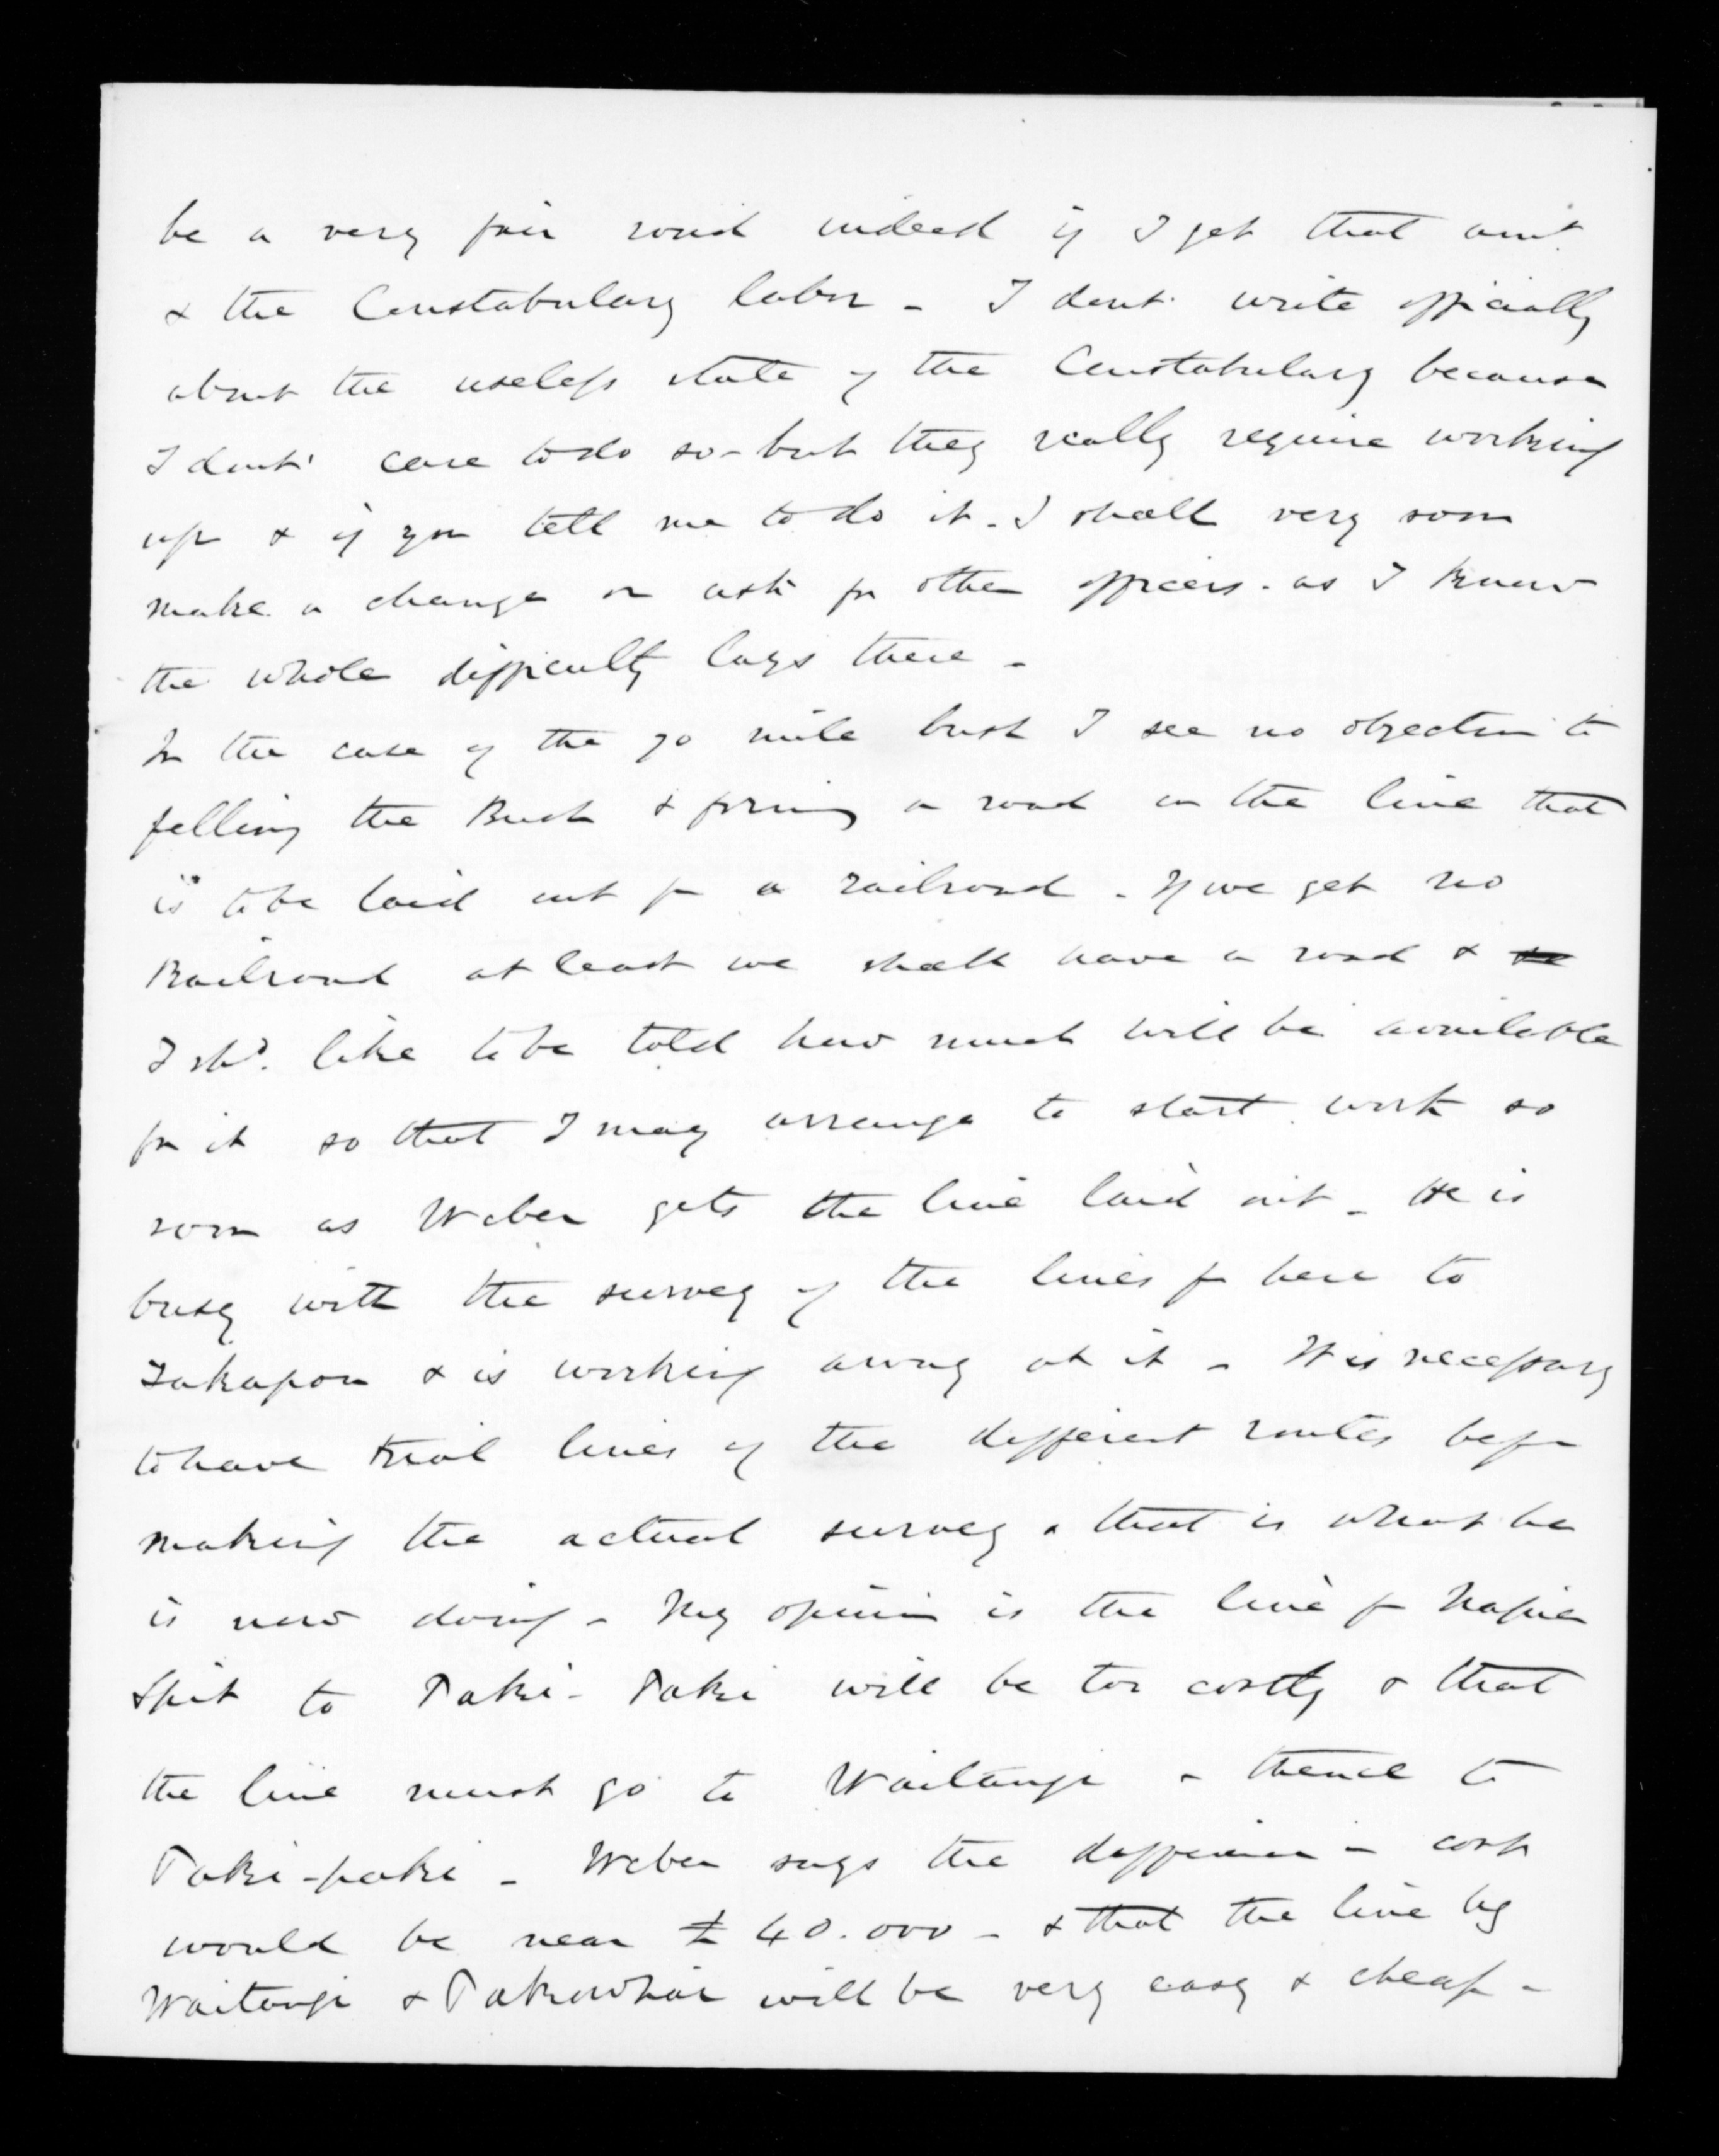 be a very fair road indeed if I get that amt.
& the Constabulary labor - I dont write officially
about the useless state of the Constabulary because
I dont care to do so - but they really require working
up & if you tell me to do it - I shall very soon
make a change or ask for other officers - as I know
the whole difficulty lays there -
In the case of the 70 mile bush I see no objection to
felling the Bush & forming a road on the line that
is to be laid out for a railroad - If we get no
Railroad at least we shall have a road &
I shd. like to be told how much will be available
for it so that I may arrange to start work so
soon as Weber gets the line laid out - He is
busy with the survey of the lines fr here to
Takapou & is working away at it - It is necessary
to have trial lines of the different routes before
making the actual survey & that is what he
is now doing - My opinion is the line fr Napier
Spit to Paki-Paki will be too costly & that
the line must go to Waitangi & thence to
Paki-paki - Weber says the difference in cost
would be near £40.000 - & that the line by
Waitangi & Pakowhai will be very easy & cheap -